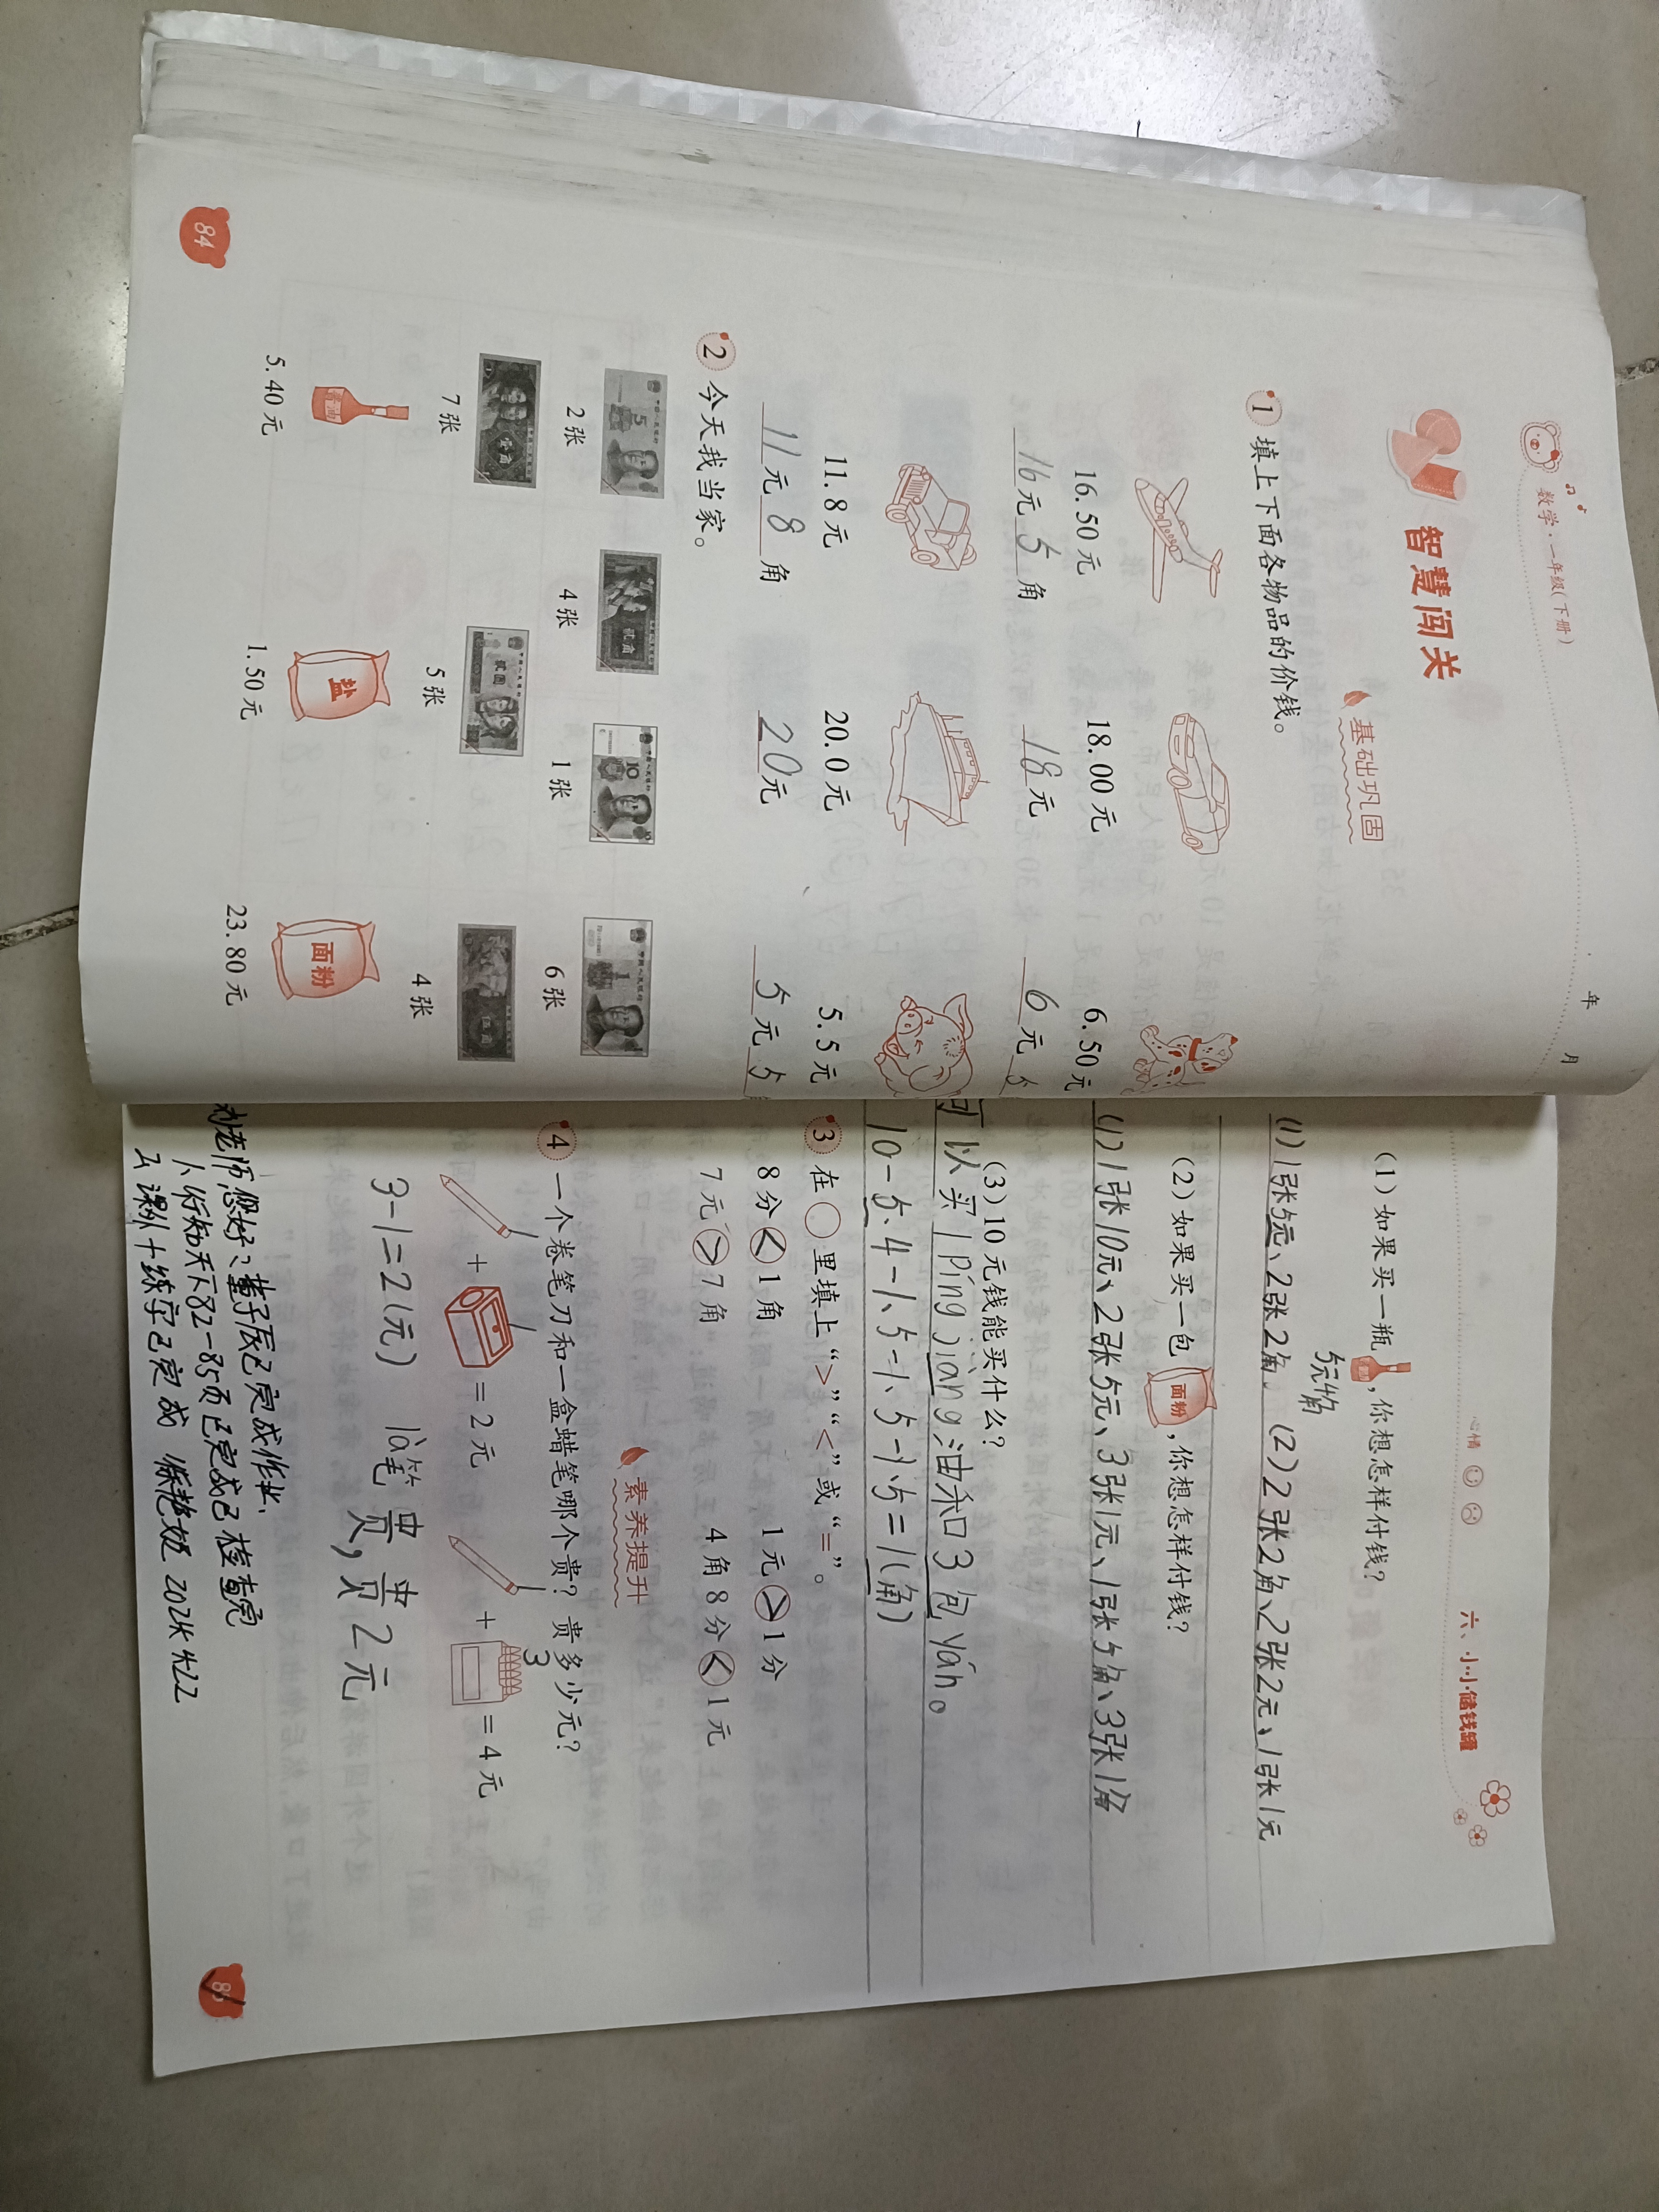 数学·一年级(下册)
年 月
智慧闯关
基础巩固
1 填上下面各物品的价钱。
16.50元 18.00元 6.50元
16元5角 18元 6元5
11.8元 20.0元 5.5元
11元8角 20元 5元5
2 今天我当家。
2张 4张 1张 6张
7张 5张 4张
酱油 盐 面粉
5.40元 1.50元 23.80元
84
心情
六、小小储钱罐
(1)如果买一瓶,你想怎样付钱?
5元4角
(1)1张5元、2张2角。(2)2张2角、2张2元、1张1元
(2)如果买一包面粉,你想怎样付钱?
(1)1张10元、2张5元、3张1元、1张5角、3张1角
(3)10元钱能买什么?
可以买1píng jiàng油和3包yán。
10-5.4-1.5-1.5-1.5=1(角)
3 在○里填上“>”“<”或“=”。
8分<1角 1元>1分
7元>7角 4角8分<1元
素养提升
4 一个卷笔刀和一盒蜡笔哪个贵?贵多少元?
1 1 1 3
+ =2元 + =4元
3-1=2(元) là笔贵,贵2元
刘老师您好:董子辰已完成作业、
1、行知天下82-85页已完成已检查完
2、课外十练字已完成
85